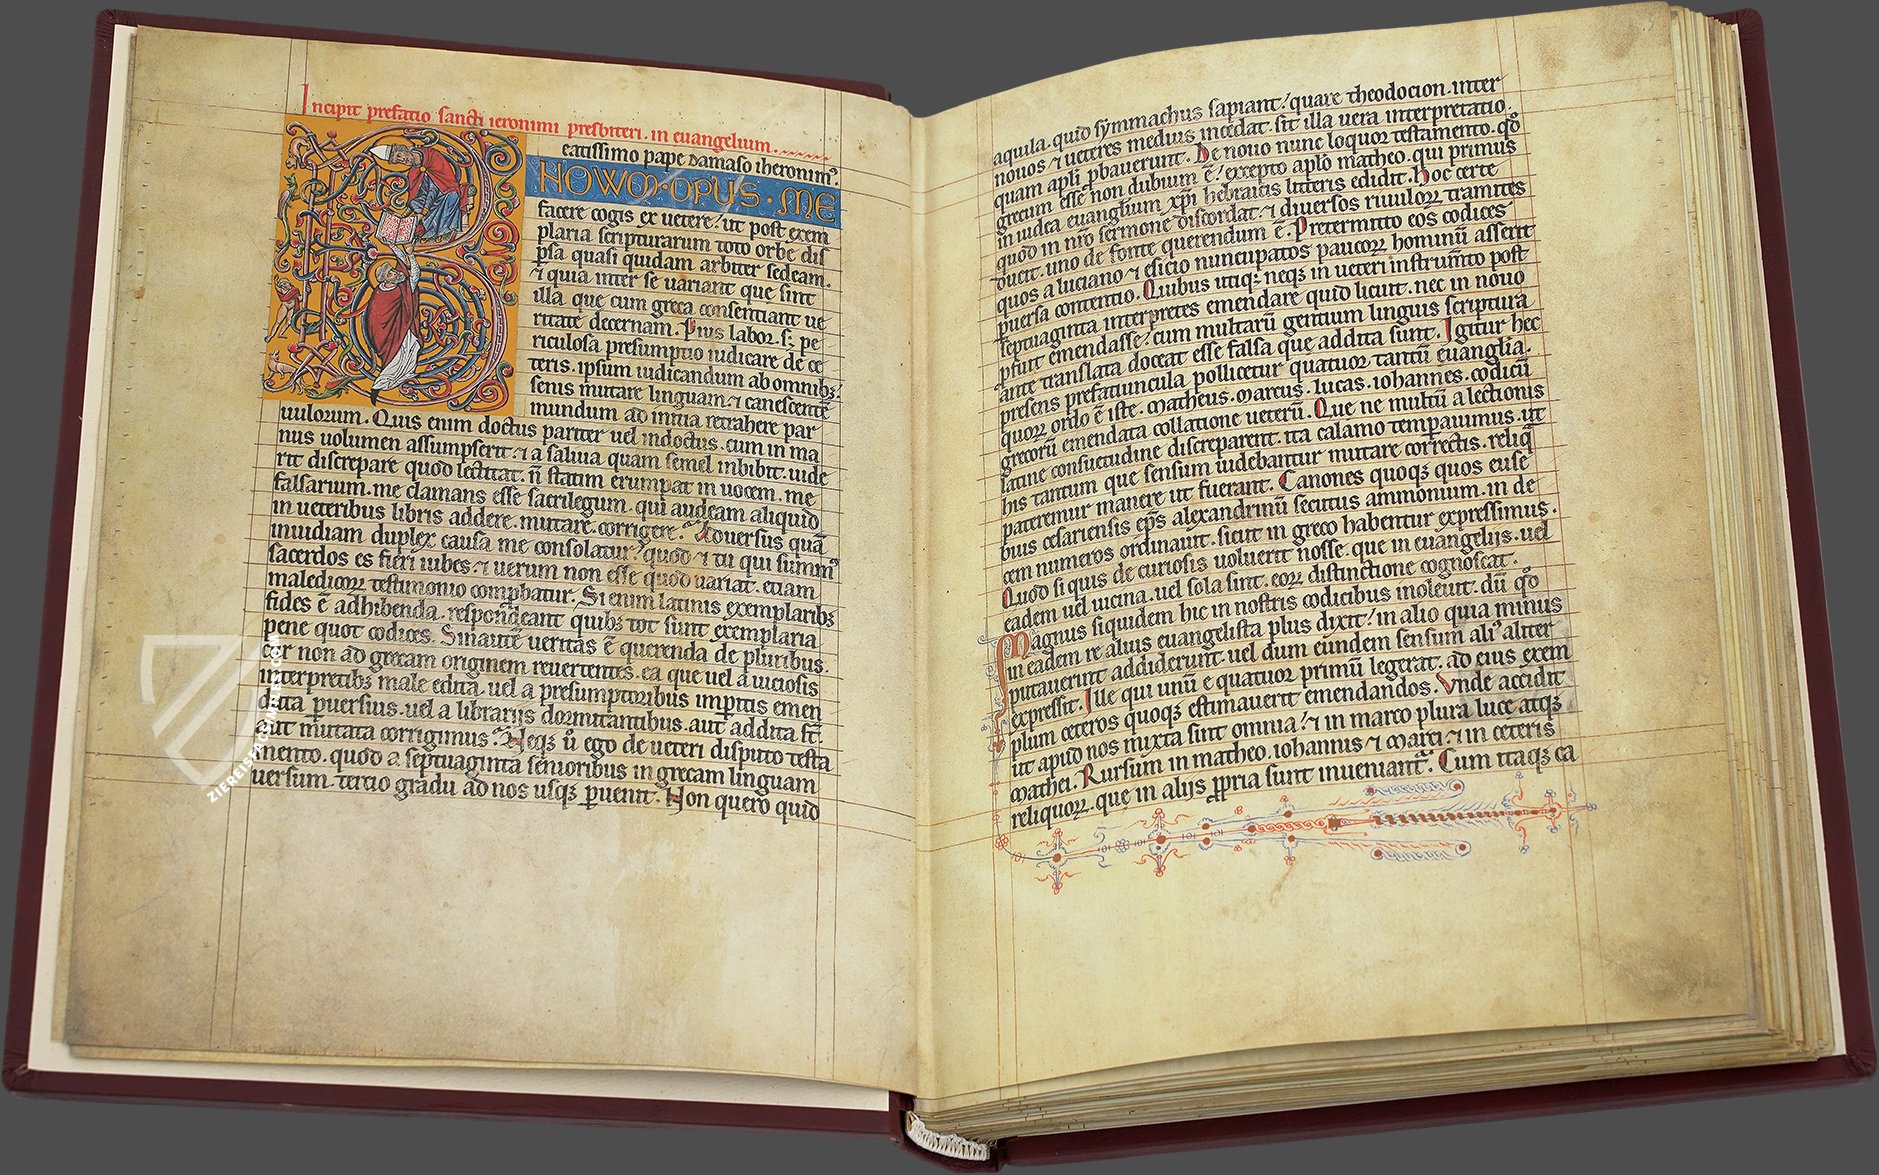 Incipit prefatio sancti ieronimi presbiteri. in euangelium.
eatissimo pape damaso iheronimꝰ.
NOWM·OPUS·ME
facere cogis ex uetere! ut post exem
plaria scripturarum toto orbe dis
psa quasi quidam arbiter sedeam.
⁊ quia inter se uariant que sint
illa que cum greca consentiant ue
ritate decernam. Pius labor. sꝫ pe
riculosa presumptio iudicare de ce
teris. ipsum iudicandum ab omnibꝫ!
senis mutare linguam. ⁊ canescentē
mundum ad initia retrahere par
uulorum. Quis enim doctus pariter uel indoctus. cum in ma
nus uolumen assumpserit. ⁊ a saliua quam semel inbibit. uide
rit discrepare quod lectitat. n̄ statim erumpat in uocem. me
falsarium. me clamans esse sacrilegum. qui audeam aliquid
in ueteribus libris addere. mutare. corrigere. Aduersus quā
inuidiam duplex causa me consolatur! quod ⁊ tu qui summꝰ
sacerdos es fieri iubes. ⁊ uerum non esse quod uariat. etiam
maledicoꝝ testimonio comp̱batur. Si enim latinis exemplaribꝫ
fides ē adhibenda. respondeant quibꝫ tot sunt exemplaria
pene quot codices. Sin autē ueritas ē querenda de pluribus.
cur non ad grecam originem reuertentes. ea que uel a uiciosis
interpretibꝫ male edita. uel a presumptoribus imp̱itis emen
data p̱uersius. uel a librarijs dormitantibus. aut addita st̄.
aut mutata corrigimus. Neqꝫ ů ego de ueteri disputo testa
mento. quod a septuaginta senioribus in grecam linguam
uersum. tercio gradu ad nos usqꝫ p̱uenit. Non quero quid
aquila. quid symmachus sapiant! quare theodocion. inter
nouos ⁊ ueteres medius incedat. sit illa uera interpretatio.
quam apl̄i ꝓbauerunt. De nouo nunc loquor testamento. qd̊
grecum esse non dubium ē! excepto apl̄o matheo. qui primus
in iudea euanglium xp̄i hebraicis litteris edidit. Hoc certe
quod in nr̄o sermone discordat. ⁊ diuersos riuuloꝝ tramites
ducit. uno de fonte querendum ē. Pretermitto eos codices
quos a luciano ⁊ esicio nuncupatos paucoꝝ hominū asserit
p̱uersa contentio. Quibus utiqꝫ neqꝫ in ueteri instrum̄to post
septuaginta interpretes emendare quid licuit. nec in nouo
ꝓfuit emendasse! cum multarū gentium linguis scriptura
ante translata doceat esse falsa que addita sunt. Igitur hec
presens prefatiuncula pollicetur quatuor tantū euanglia.
quoꝝ ordo ē iste. Matheus. Marcus. lucas. iohannes. codicū
grecorū emendata collatione ueterū. Que ne multū a lectionis
latine consuetudine discreparent. ita calamo temp̱auimus. ut
his tantum que sensum uidebantur mutare correctis. reliq̄
pateremur manere ut fuerant. Canones quoqꝫ quos euse
bius cesariensis ep̄s alexandrinū secutus ammonium. in de
cem numeros ordinauit. sicut in greco habentur expressimus.
Quod si quis de curiosis uoluerit nosse. que in euangelijs. uel
eadem uel uicina. uel sola sint. eoꝝ distinctione cognoscat.
Magnus siquidem hic in nostris codicibus inoleuit. dū qd̊
in eadem re alius euangelista plus dixit! in alio quia minus
putauerint addiderunt. uel dum eundem sensum aliꝰ aliter
expressit. Ille qui unū e quatuor primū legerat. ad eius exem
plum ceteros quoqꝫ estimauerit emendandos. Vnde accidit
ut apud nos mixta sint omnia! ⁊ in marco plura luce atqꝫ
mathei. Rursum in matheo. iohannis ⁊ marci ⁊ in ceteris
reliquoꝝ. que in alijs ꝓpria sunt inueniantᷣ. Cum itaqꝫ ca